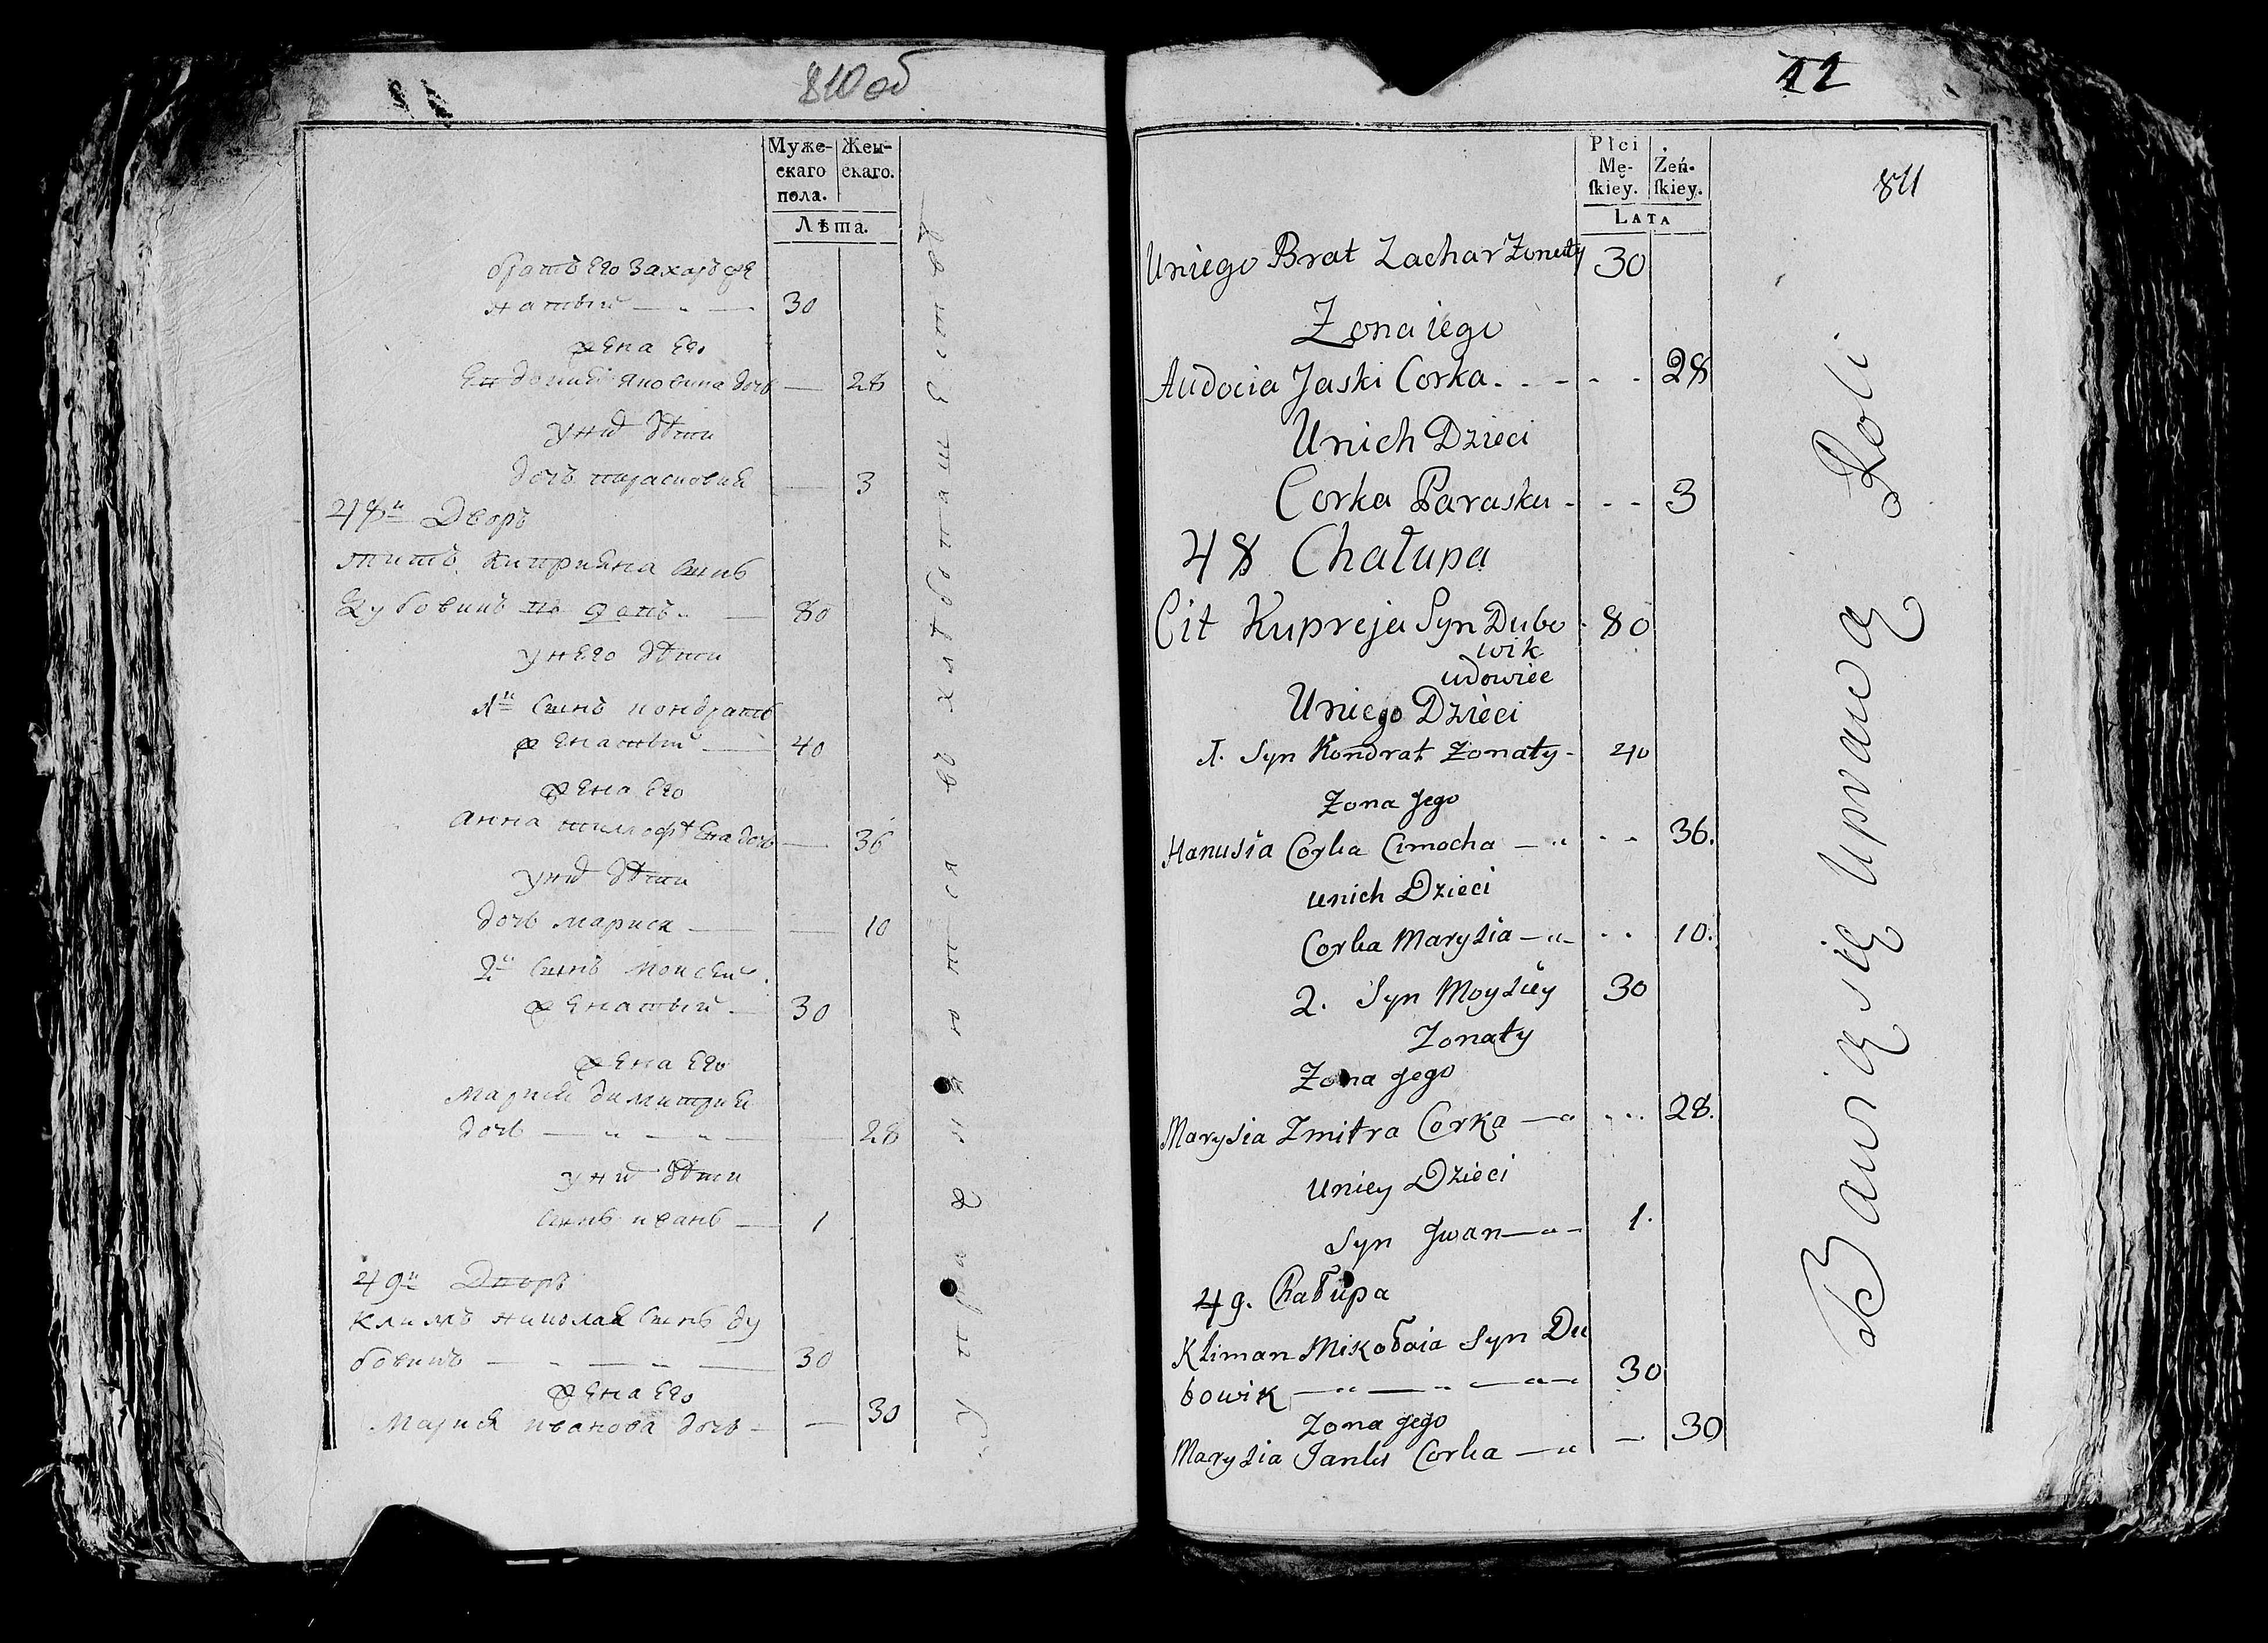 810об
Муже-
скаго
пола.
Жен-
скаго.
Лѣта.
братъ его Захаръ же
натый 30
жена его
Евдокия Яковина дочь 28
у нихъ дѣти
дочь Парасковия 3
48й Дворъ
Титъ Киприяна сынъ
Дубовикъ 80
у него дѣти
1й сынъ Кондратъ
женатый 40
жена его
Анна Тимофѣева дочь 36
у нихъ дѣти
дочь Марися 10
2й сынъ Моисей
женатый 30
жена его
Мария Димитрия
дочь 28
у нихъ дѣти
сынъ Иванъ 1
49й Дворъ
Климъ Николая сынъ Ду
бовикъ 30
жена его
Мария Иванова дочь 30
12
811
Płci
Mę-
ſkiey.
Żeń-
ſkiey.
LATA
Uniego Brat Zachar Zonaty 30
Zona iego
Audocia Jaski Corka 28
Unich Dzieci
Corka Paraska 3
48 Chałupa
Cit Kupreja Syn Dubo 80
wik
udowiec
Uniego Dzieci
1. Syn Kondrat Zonaty 40
Zona Jego
Hanusia Corka Cimocha 36.
unich Dzieci
Corka Marysia 10.
2. Syn Moysiey 30
Zonaty
Zona Jego
Marysia Zmitra Corka 28.
Uniey Dzieci
Syn Jwan 1.
49. Chałupa
Kliman Mikołaia Syn Du
bowik 30
Zona Jego
Marysia Janki Corka 30
Bawią się Uprawą Roli